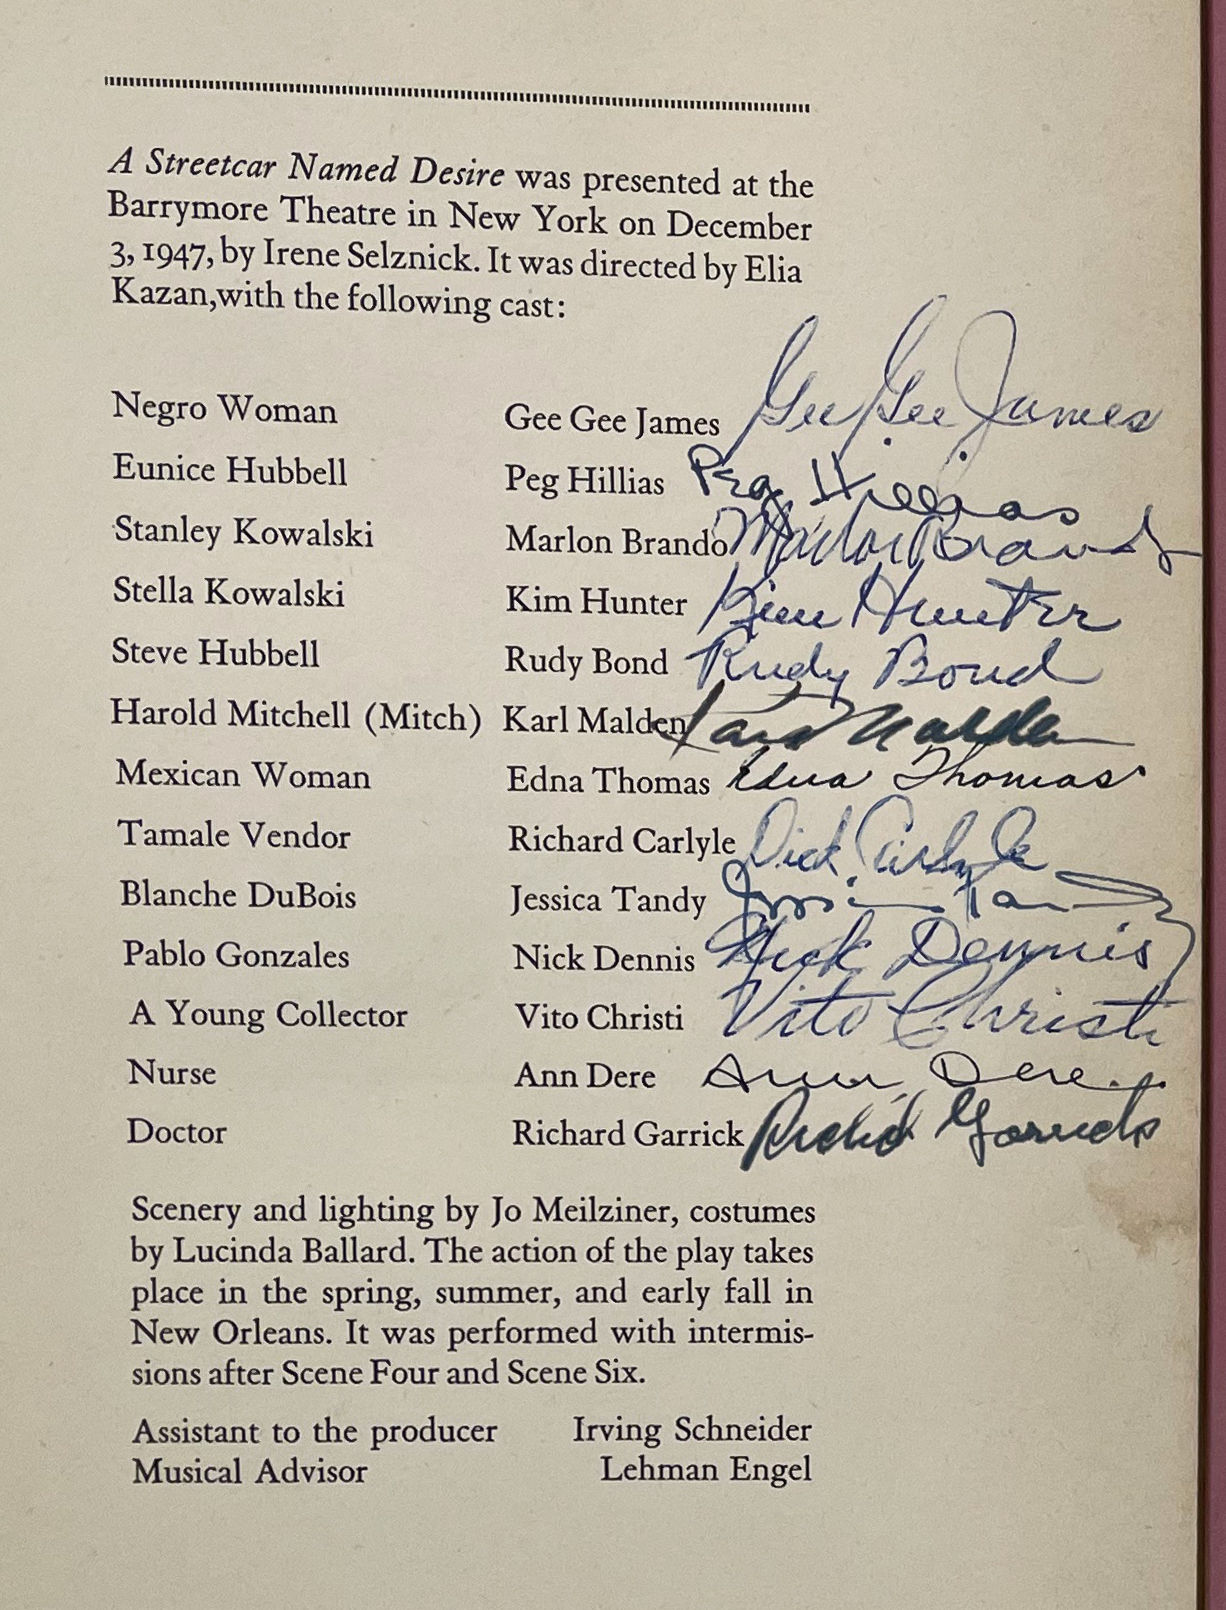 A Streetcar Named Desire was presented at the
Barrymore Theatre in New York on December
3, 1947, by Irene Selznick. It was directed by Elia
Kazan,with the following cast:
Negro Woman Gee Gee James Gee Gee James
Eunice Hubbell Peg Hillias Peg Hillias
Stanley Kowalski Marlon Brando Marlon Brando
Stella Kowalski Kim Hunter Kim Hunter
Steve Hubbell Rudy Bond Rudy Bond
Harold Mitchell (Mitch) Karl Malden Karl Malden
Mexican Woman Edna Thomas Edna Thomas
Tamale Vendor Richard Carlyle Dick Carlyle
Blanche DuBois Jessica Tandy Jessica Tandy
Pablo Gonzales Nick Dennis Nick Dennis
A Young Collector Vito Christi Vito Christi
Nurse Ann Dere Ann Dere
Doctor Richard Garrick Richard Garrick
Scenery and lighting by Jo Meilziner, costumes
by Lucinda Ballard. The action of the play takes
place in the spring, summer, and early fall in
New Orleans. It was performed with intermis-
sions after Scene Four and Scene Six.
Assistant to the producer Irving Schneider
Musical Advisor Lehman Engel